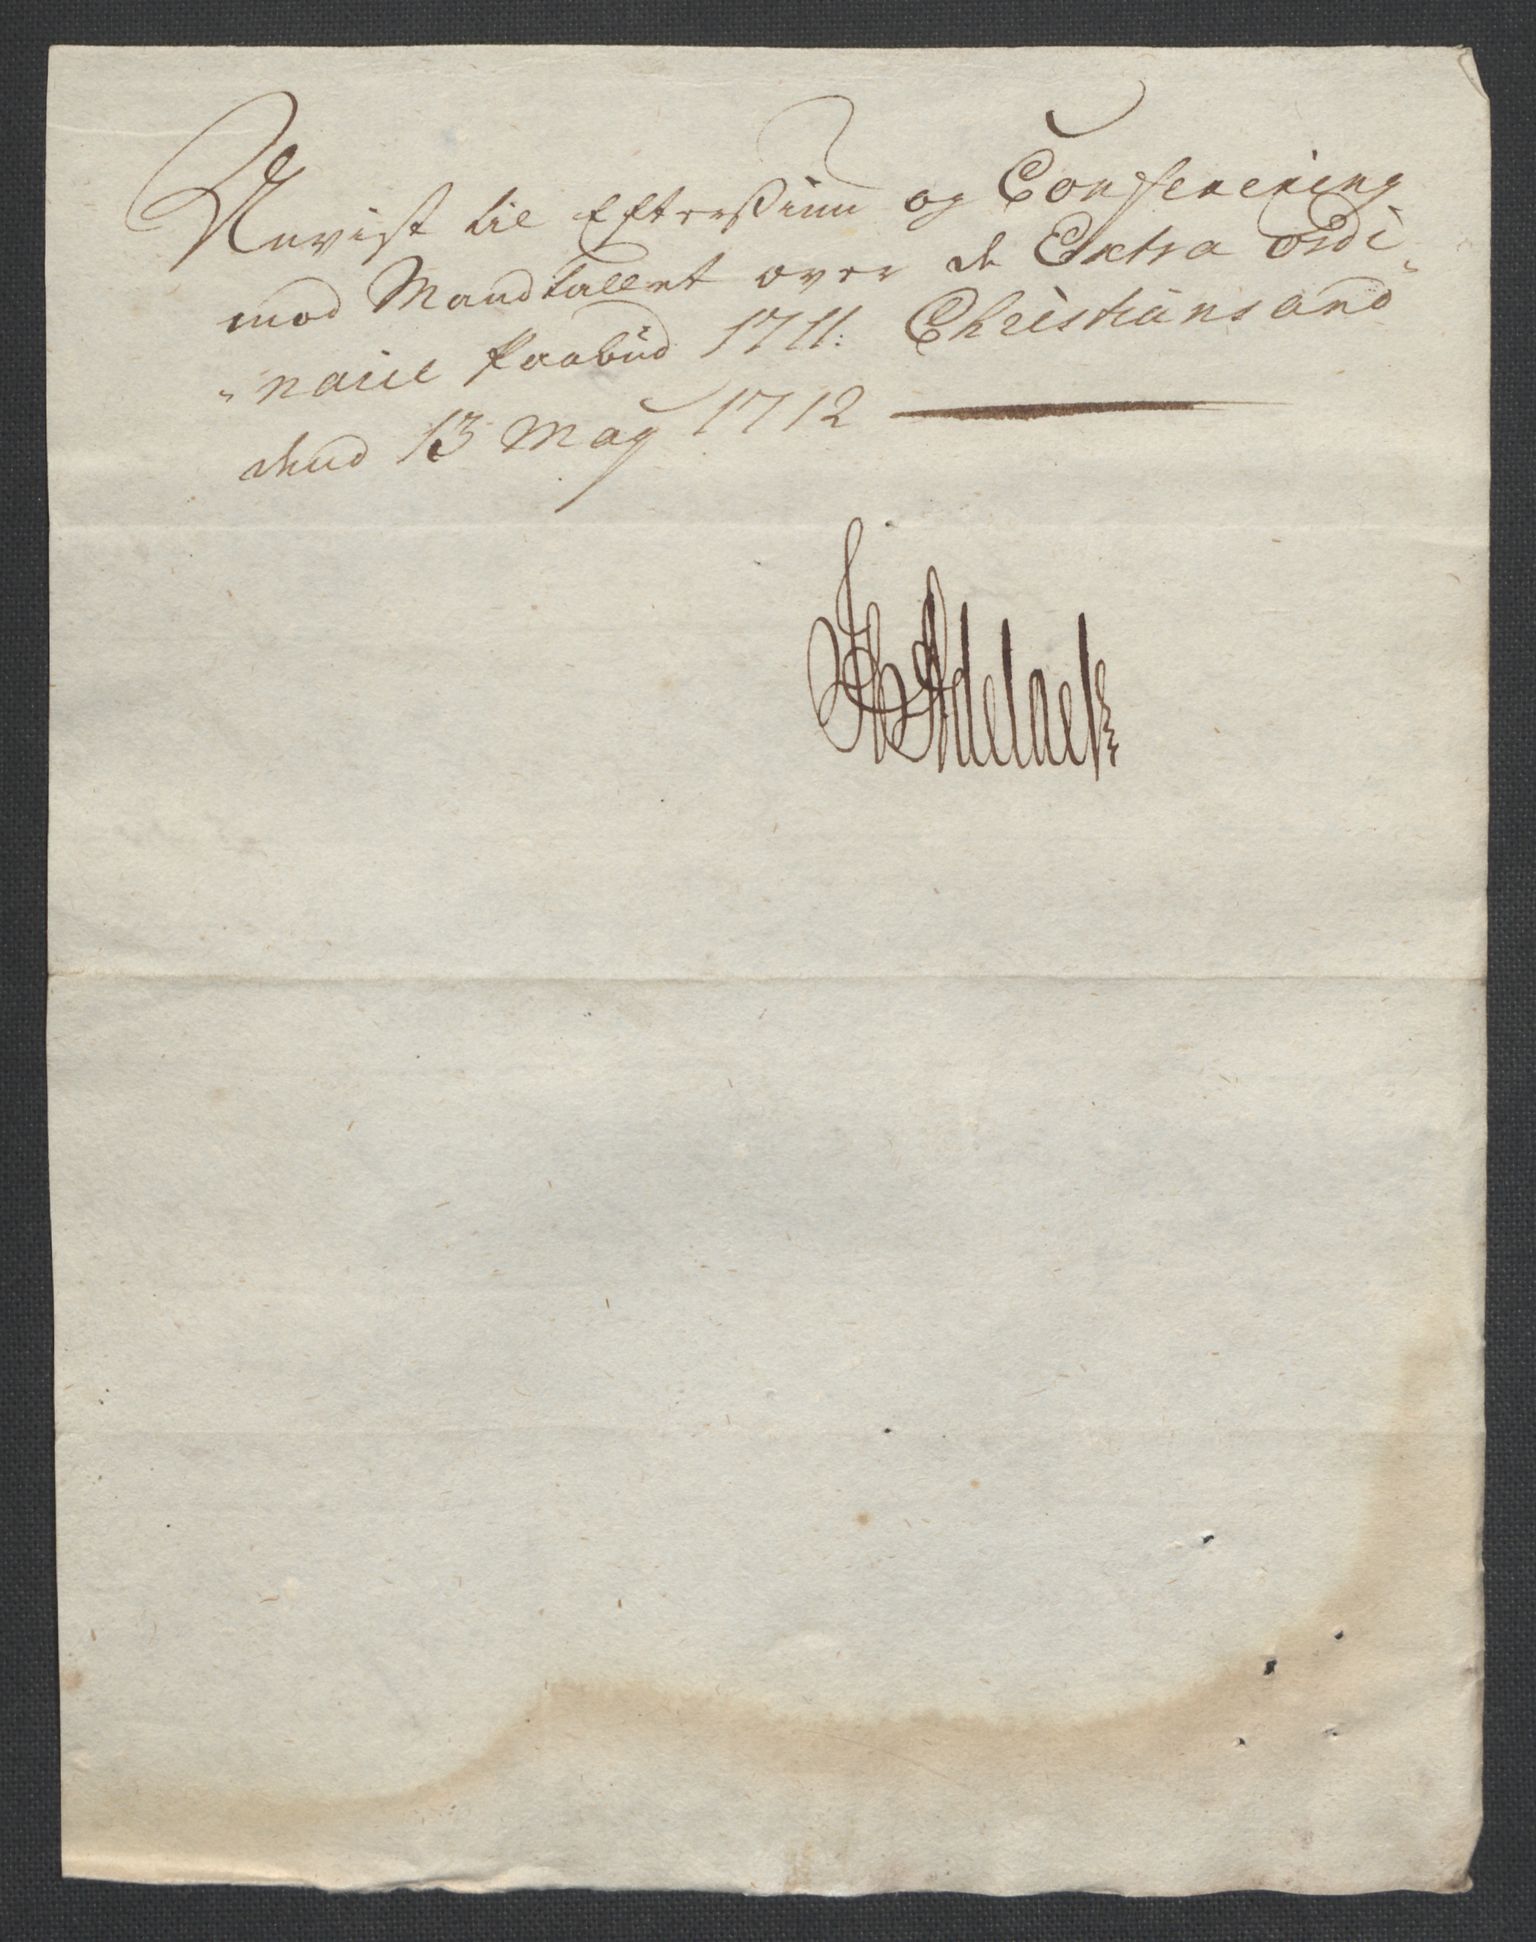 Anvist til Efftersiun og Conferering
mod Mandtallet over de Extra ordi„
„naire Paabud 1711: Christiansand
dend 13 May 1712
Adelaer